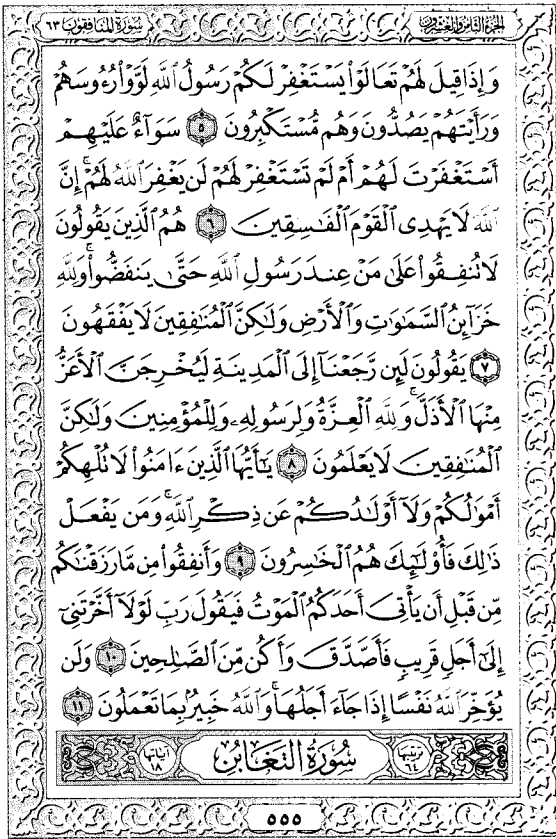 الجزء الثامن والعشرون
سورة المنافقون ٦٣
وَإِذَا قِيلَ لَهُمْ تَعَالَوْا۟ يَسْتَغْفِرْ لَكُمْ رَسُولُ ٱللَّهِ لَوَّوْا۟ رُءُوسَهُمْ
وَرَأَيْتَهُمْ يَصُدُّونَ وَهُم مُّسْتَكْبِرُونَ ٥ سَوَآءٌ عَلَيْهِمْ
أَسْتَغْفَرْتَ لَهُمْ أَمْ لَمْ تَسْتَغْفِرْ لَهُمْ لَن يَغْفِرَ ٱللَّهُ لَهُمْ ۚ إِنَّ
ٱللَّهَ لَا يَهْدِى ٱلْقَوْمَ ٱلْفَـٰسِقِينَ ٦ هُمُ ٱلَّذِينَ يَقُولُونَ
لَا تُنفِقُوا۟ عَلَىٰ مَنْ عِندَ رَسُولِ ٱللَّهِ حَتَّىٰ يَنفَضُّوا۟ ۗ وَلِلَّهِ
خَزَآئِنُ ٱلسَّمَـٰوَٰتِ وَٱلْأَرْضِ وَلَـٰكِنَّ ٱلْمُنَـٰفِقِينَ لَا يَفْقَهُونَ
٧ يَقُولُونَ لَئِن رَّجَعْنَآ إِلَى ٱلْمَدِينَةِ لَيُخْرِجَنَّ ٱلْأَعَزُّ
مِنْهَا ٱلْأَذَلَّ ۚ وَلِلَّهِ ٱلْعِزَّةُ وَلِرَسُولِهِۦ وَلِلْمُؤْمِنِينَ وَلَـٰكِنَّ
ٱلْمُنَـٰفِقِينَ لَا يَعْلَمُونَ ٨ يَـٰٓأَيُّهَا ٱلَّذِينَ ءَامَنُوا۟ لَا تُلْهِكُمْ
أَمْوَٰلُكُمْ وَلَآ أَوْلَـٰدُكُمْ عَن ذِكْرِ ٱللَّهِ ۚ وَمَن يَفْعَلْ
ذَٰلِكَ فَأُو۟لَـٰٓئِكَ هُمُ ٱلْخَـٰسِرُونَ ٩ وَأَنفِقُوا۟ مِن مَّا رَزَقْنَـٰكُم
مِّن قَبْلِ أَن يَأْتِىَ أَحَدَكُمُ ٱلْمَوْتُ فَيَقُولَ رَبِّ لَوْلَآ أَخَّرْتَنِىٓ
إِلَىٰٓ أَجَلٍ قَرِيبٍ فَأَصَّدَّقَ وَأَكُن مِّنَ ٱلصَّـٰلِحِينَ ١٠ وَلَن
يُؤَخِّرَ ٱللَّهُ نَفْسًا إِذَا جَآءَ أَجَلُهَا ۚ وَٱللَّهُ خَبِيرٌۢ بِمَا تَعْمَلُونَ ١١
ترتيبها ٦٤ سُورَةُ التَّغَابُن آياتها ١٨
٥٥٥